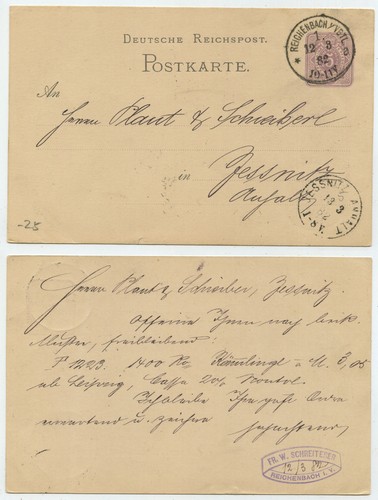 DEUTSCHE REICHSPOST.
POSTKARTE.
REICHENBACH i/VGTL.
1.
12 3
82
10-11V
An
Herrn Plaut & Schreiber
in
Jessnitz
Anhalt
JESSNITZ ANHALT
13 3
82
-25
Herrn Plaut & Schreiber, Jessnitz.
Offerire Ihnen nach
Muster, freibleibend:
P 1223. 1400 Ko Kämmlinge à M. 3,05
ab Leipzig, Cassa 2% Sconto.
Ihre Ordre
erwartend u. zeichne
FR. W. SCHREITERER
12/3 82
REICHENBACH i. V.